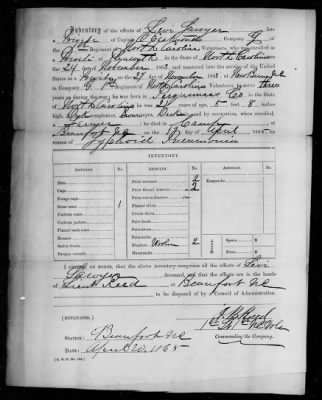 Inventory of the effects of Levi Sawyer
a Private of Captain Company G
of the 1st Regiment North Carolina Volunteers, who was enrolled
as a Private at Plymouth in the State of North Carolina
on the 24 day of November 1863, and mustered into the service of the United
States as a Private on the 28 day of November 1863 at
in Company G 1st Regiment North Carolina Volunteers, to serve three
years or during the war; he was born in Perquimans Co in the State of
North Carolina; he was 24 years of age, 5 feet 8 inches
high, Dark complexion, eyes, Dark hair, and by occupation, when enrolled, a
Farmer; he died in Camp
Beaufort NC on the 17 day of April 1865, by
reason of Typhoid Pneumonia
INVENTORY.
Hats
Caps
Forage caps
Great coats 1
Uniform coats
Uniform jackets
Flannel sack coats
Blouses
Stable frocks
Fatigue overalls
Pairs trowsers 2
Pairs flannel drawers 2
Pairs cotton drawers
Flannel shirts
Cotton shirts
Pairs boots
Pairs shoes
Pairs socks
Blankets Woolen 2
Haversacks
Knapsacks
Money . . Specie . . $
Notes . . $
I certify, on honor, that the above inventory comprises all the effects of Levi
Sawyer deceased, and that the effects are in the hands
of Lieut Reed at Beaufort NC
to be disposed of by Council of Administration.
(DUPLICATES.)
Commanding the Company.
STATION: Beaufort NC
DATE: April 20, 1865